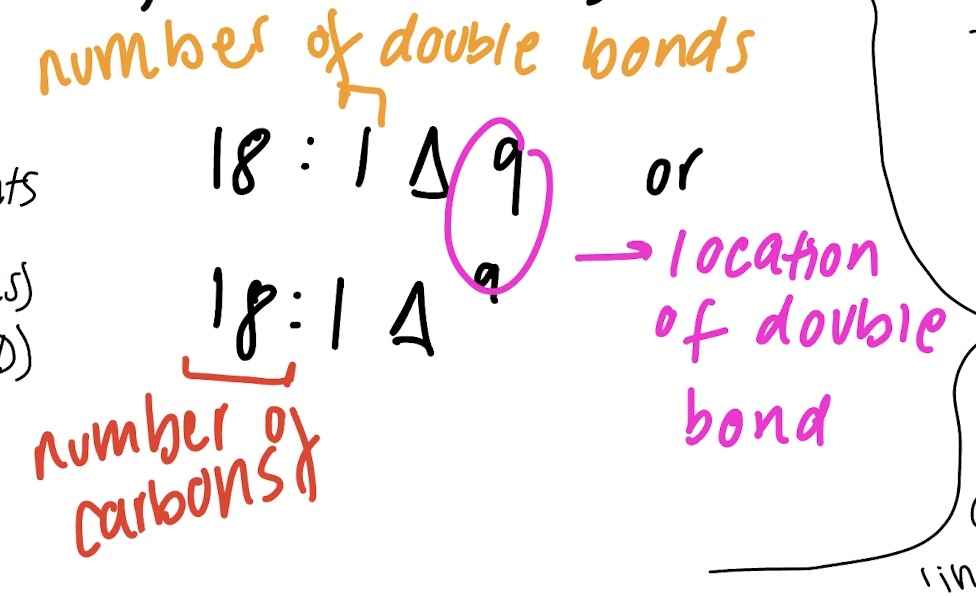 number of double bonds
18 : 1 Δ 9 or
nts
→ location
18:1 Δ⁹ of double
s)
D)
bond
number of
carbons
'in